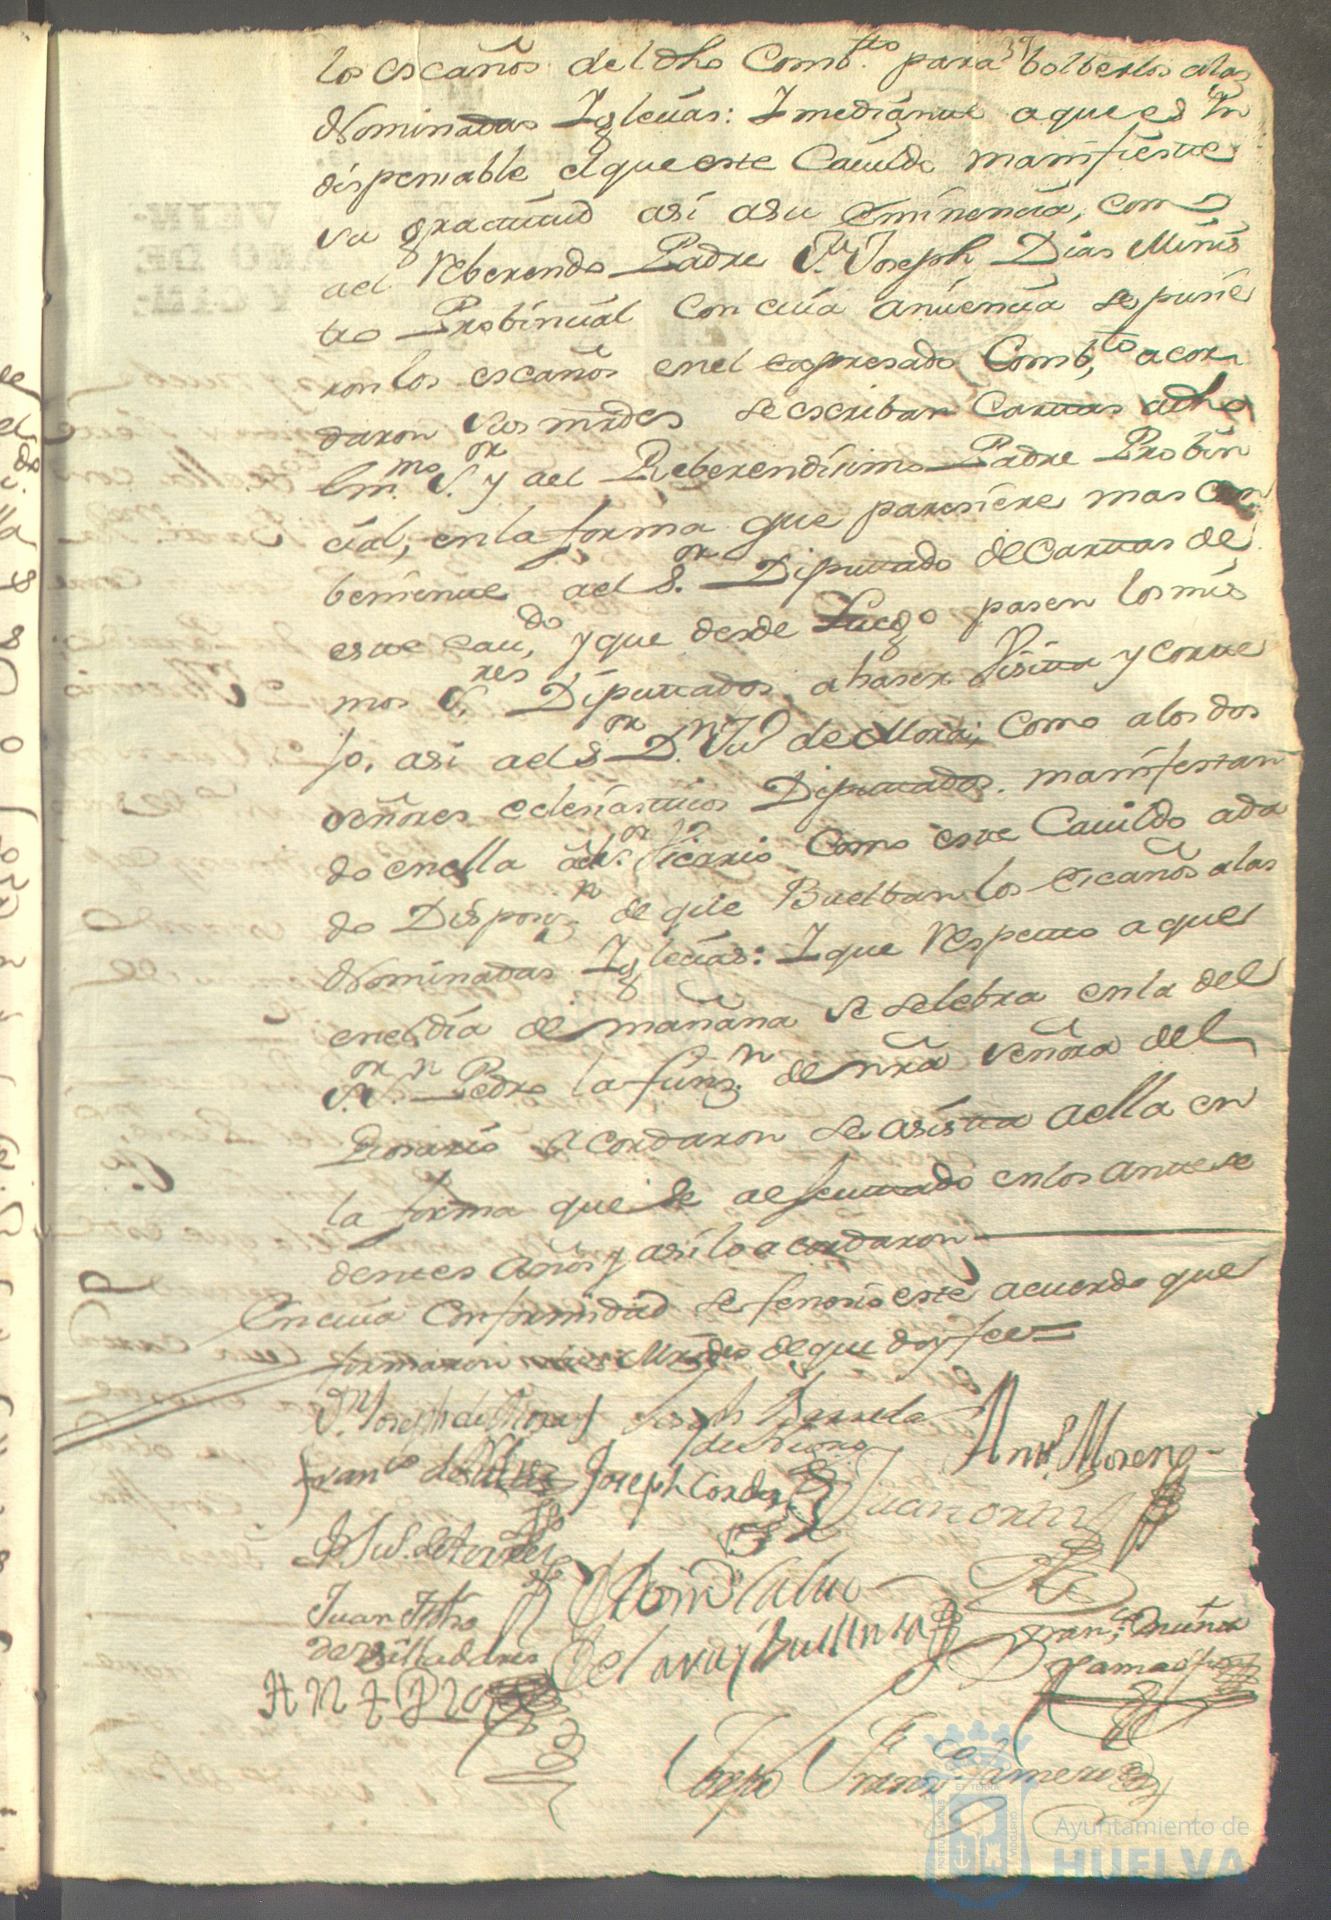 los escaños del dho Combto para bolberlos alas
Nominadas Yglecias: Y mediante aque es yn
dispensable el que este Cauildo manifieste
su gractitud asi asu eminencia, como
ael Reberendo Padre Fr. Joseph Dias Minis
tro Probincial con cuia anuencia se pusie
ron los escaños enel expresado Combto, acor
daron sus mrdes se escriban Cartas adho
Emmo Sor y ael Reberendisimo Padre Probin
cial, enla forma que paresiere mas con
beniente ael Sor Diputado de Cartas de
este Caudo, y que desde Luego pasen los mis
mos Sres Diputados, a haser Visita y corte
jo, asi ael Sor Dn de Mora; como alos dos
señores eclesiasticos Diputados. manifestan
do enella ael Sor Vicario Como este Cauildo ada
do Disposizn de que Buelban los escaños alas
Nominadas Yglecias: Y que Respecto aque
enel dia de mañana se selebra enla del
Sor Sn Pedro la funzn de nra señora del
Rosario acordaron se asista aella en
la forma que se a efectuado enlos antese
dentes años y asi lo acordaron
En cuia Conformidad se fenesio este acuerdo que
firmaron sus Mrdes de que doy fee=
Dn Joseph de
Joseph Barreda
Anto Moreno
Franco de
Joseph Cordero
Juan Ortiz
Juan
de Villadares
Franco
Joseph Franco Romero
Ayuntamiento de
HUELVA